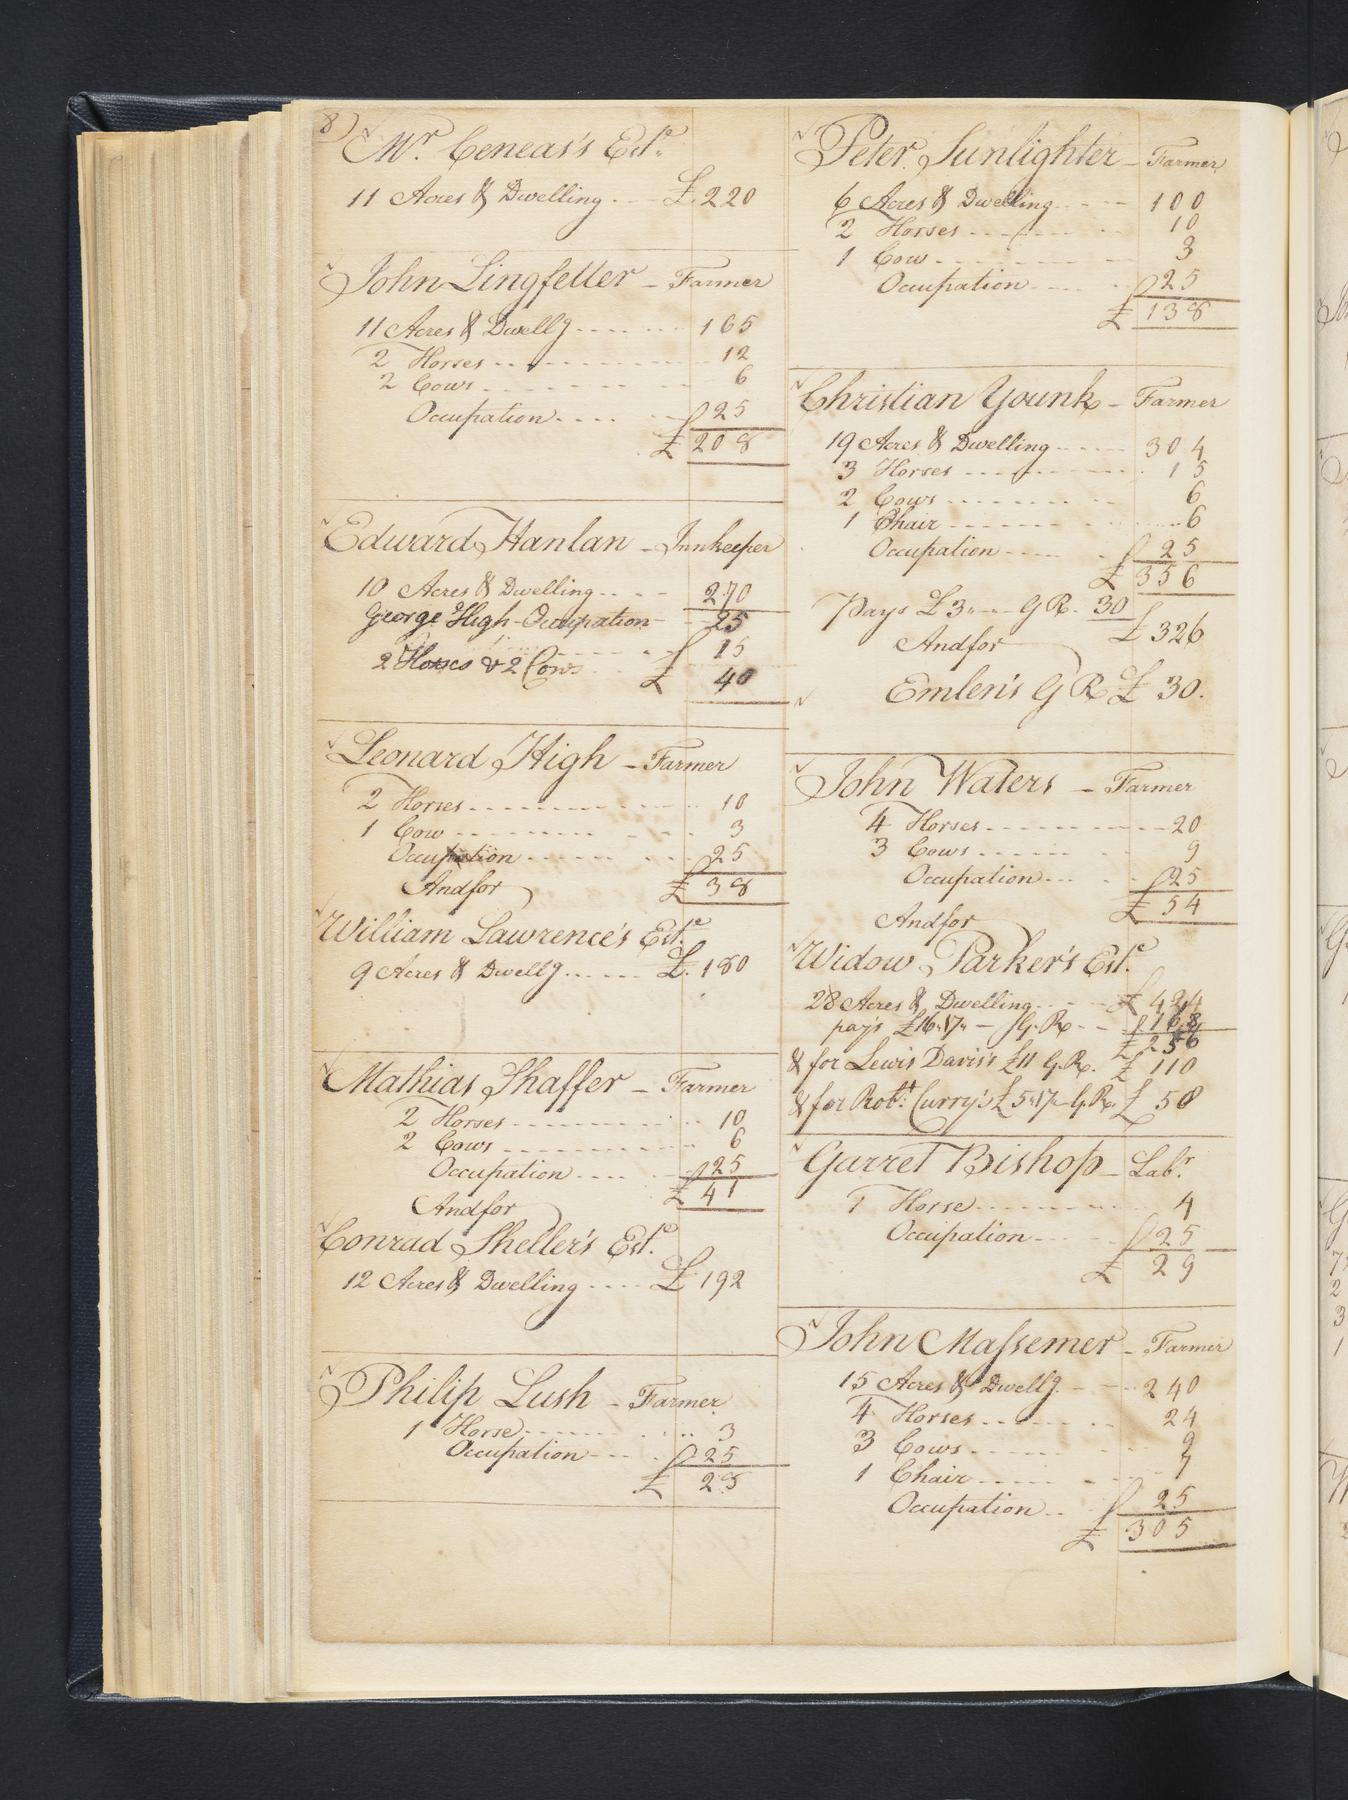 8)
Mr. Ceneas's Este.
11 Acres & Dwelling £220
John Lingfelter - Farmer
11 Acres & Dwellg 165
2 Horses 12
2 Cows 6
Occupation 25
£ 208
Edward Hanlan - Innkeeper
10 Acres & Dwelling 270
George High Occupation 25
2 Horses & 2 Cows 15
£ 40
Leonard High - Farmer
2 Horses 10
1 Cow 3
Occupation 25
And for £ 38
William Lawrence's Este.
9 Acres & Dwellg £. 180
Mathias Shaffer - Farmer
2 Horses 10
2 Cows 6
Occupation 25
And for £ 41
Conrad Sheller's Este.
12 Acres & Dwelling £ 192
Philip Lush - Farmer
1 Horse 3
Occupation 25
£ 28
Peter Sunlighter - Farmer
6 Acres & Dwelling 100
2 Horses 10
1 Cow 3
Occupation 25
£ 138
Christian Younk - Farmer
19 Acres & Dwelling 304
3 Horses 15
2 Cows 6
1 Chair 6
Occupation 25
£ 356
Pays £3 G R. 30
And for £ 326
Emlen's G R £ 30.
John Waters - Farmer
4 Horses 20
3 Cows 9
Occupation 25
£ 54
And for
Widow Parker's Este.
28 Acres & Dwelling £ 424
pays £16.17 G. R. 168
£ 256
& for Lewis Davis's £11 G.R. £ 110
& for Robt. Curry's £5.17 G.R. £ 58
Garret Bishop - Labr.
1 Horse 4
Occupation 25
£ 29
John Massemer - Farmer
15 Acres & Dwellg 240
4 Horses 24
3 Cows 9
1 Chair 7
Occupation 25
£ 305